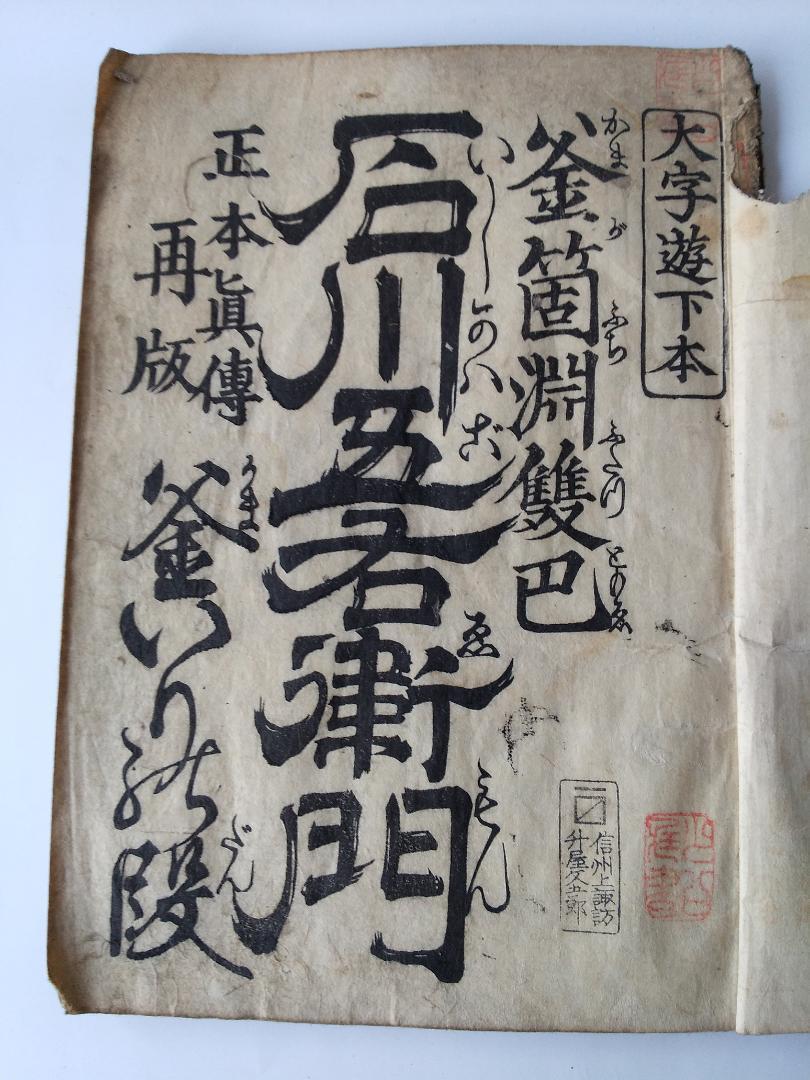 大字遊下本
釜箇淵雙巴
かまがふちふたつともゑ
石川五右衛門
いしかハごゑもん
正本眞傳
再版
釜いりの段
かま
だん
信州上諏訪
升屋久五郎